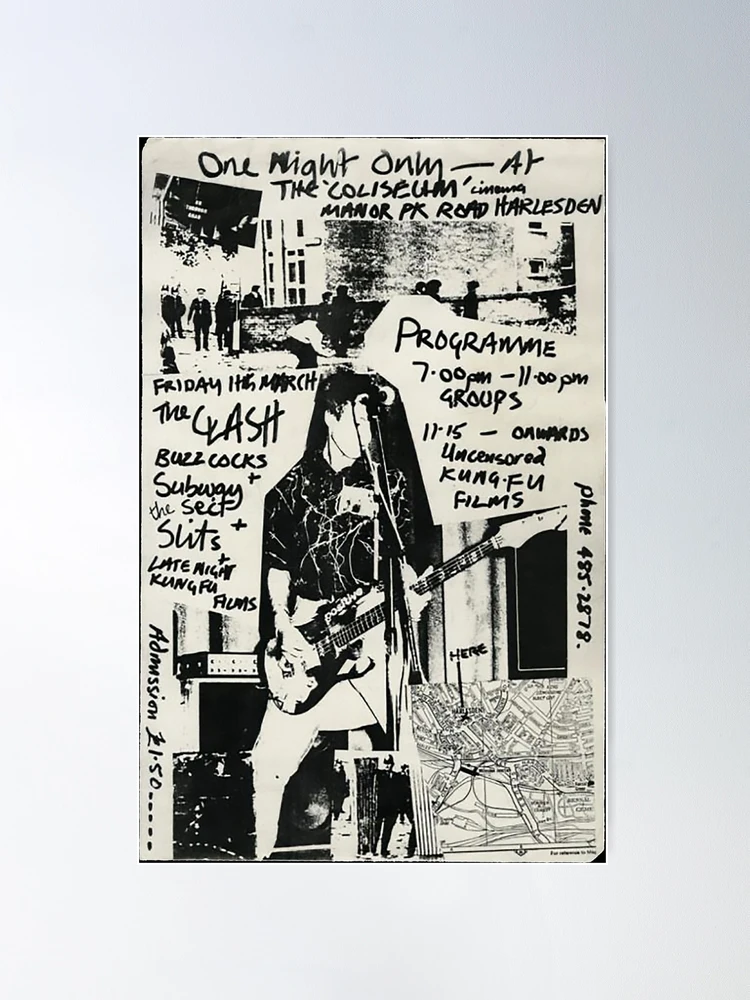 One Night Only — At
THE 'COLISEUM' cinema
MANOR PK ROAD HARLESDEN
NO
THROUGH
ROAD
PROGRAMME
7·00pm – 11·00pm
GROUPS
11·15 — ONWARDS
Uncensored
KUNG·FU
FILMS
FRIDAY 11th MARCH
The CLASH
BUZZCOCKS
+
Subway
the Sect
+
Slits
+
LATE NIGHT
KUNG FU
FILMS
phone 485·2878.
Admission £1·50......
positive
HERE
HARLESDEN
For reference to